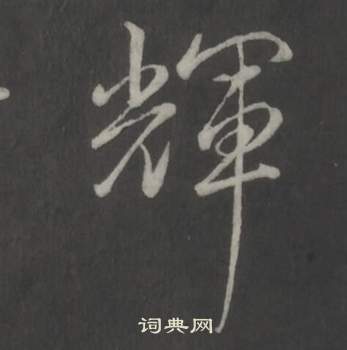 輝
词典网